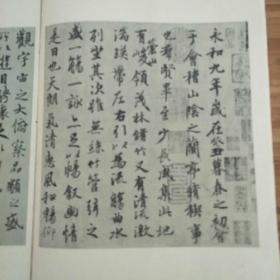 永和九年歲在癸丑暮春之初會
于會稽山陰之蘭亭脩稧事
也羣賢畢至少長咸集此地
有崇山峻領茂林脩竹又有清流激
湍暎帶左右引以為流觴曲水
列坐其次雖無絲竹管弦之
盛一觴一詠亦足以暢敘幽情
是日也天朗氣清惠風和暢仰
觀宇宙之大俯察品類之盛
所以遊目騁懷